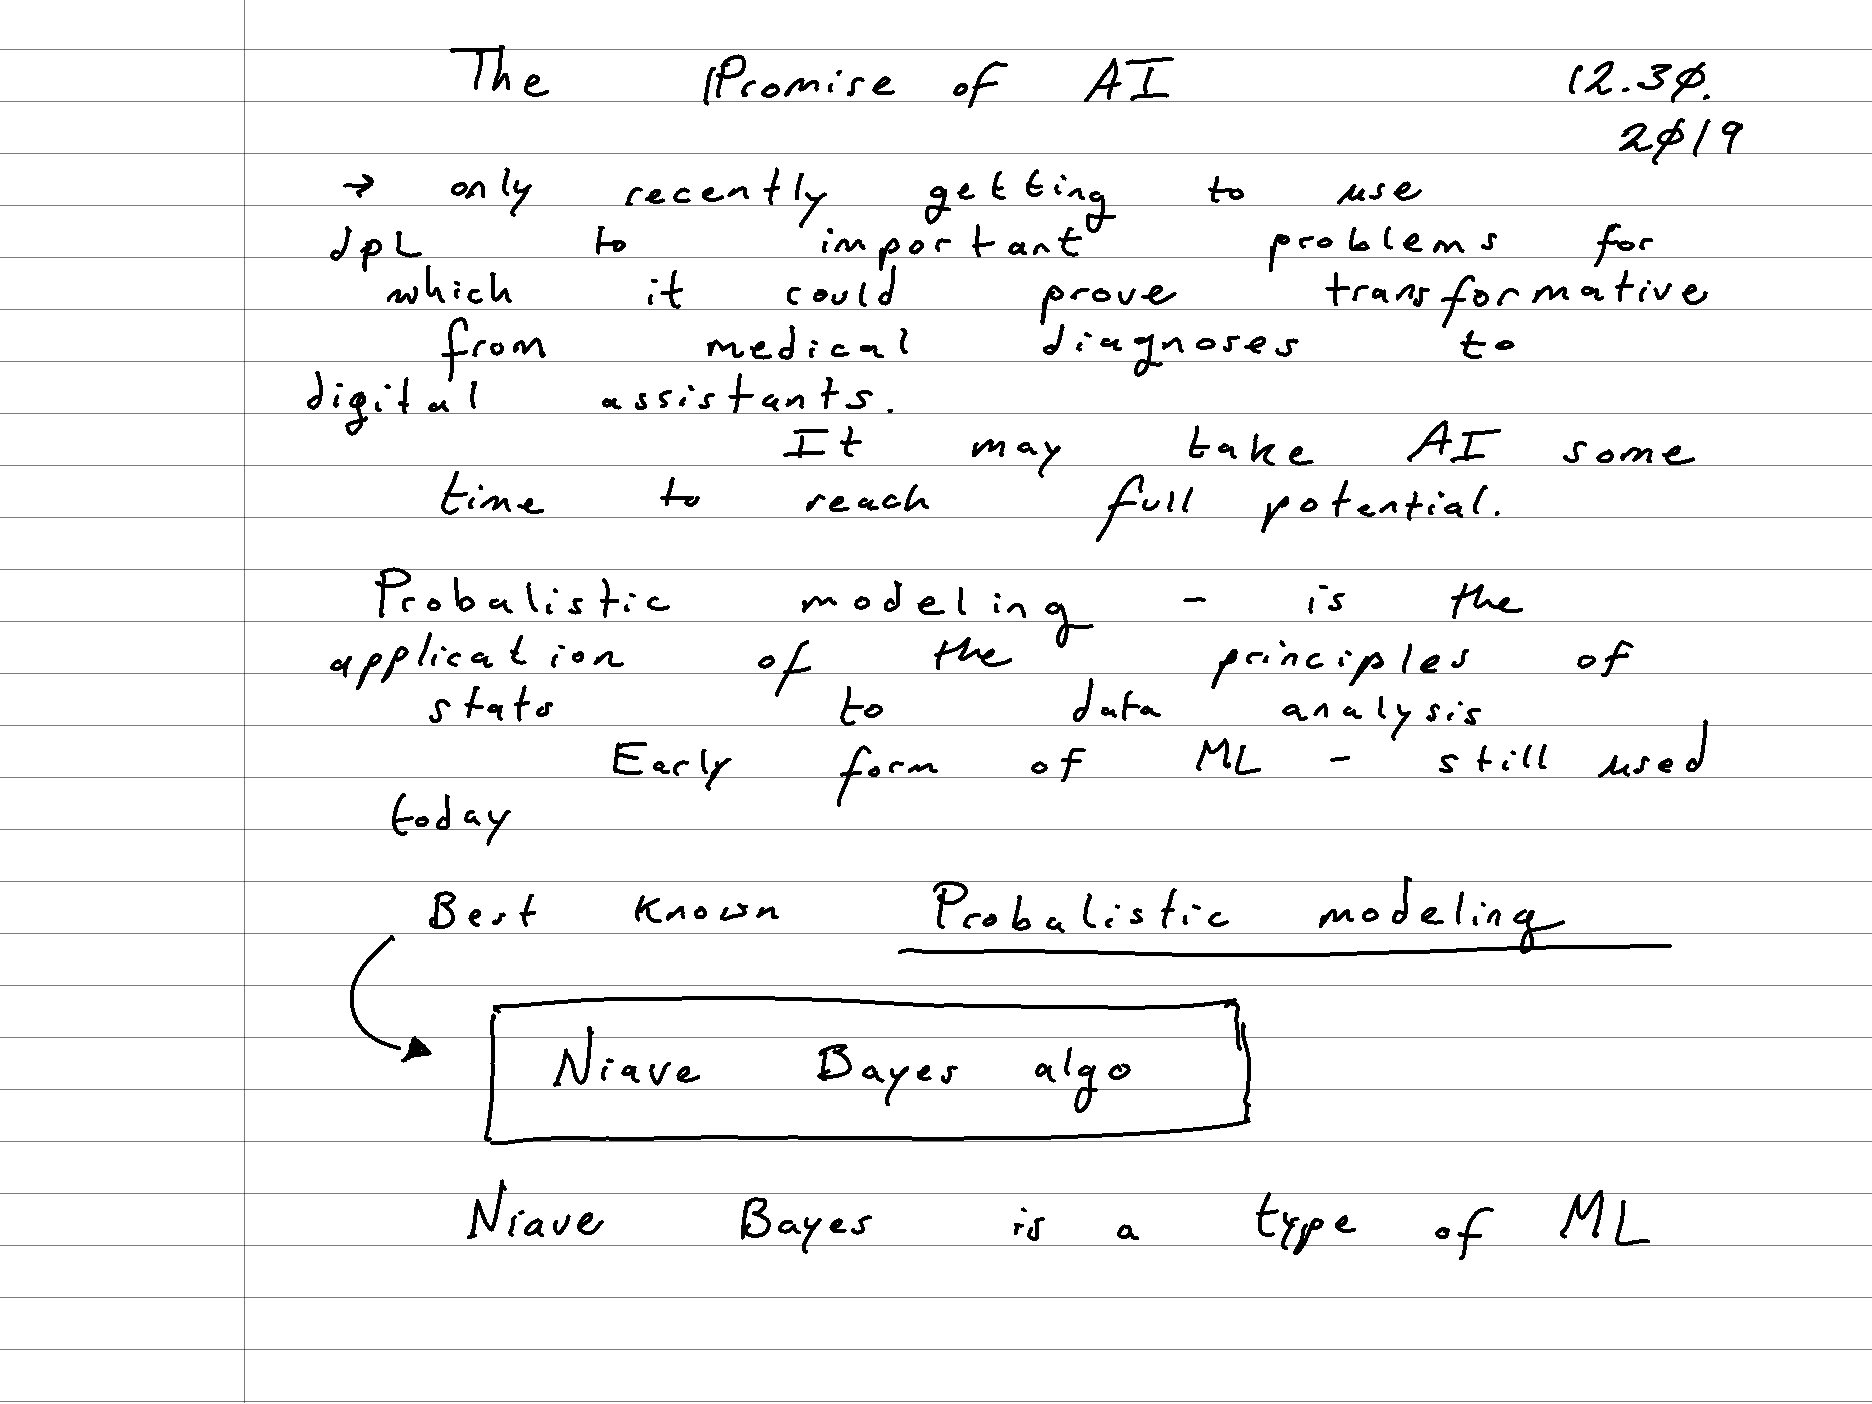 The Promise of AI 12.30.
2019
→ only recently getting to use
dpL to important problems for
which it could prove transformative
from medical diagnoses to
digital assistants.
It may take AI some
time to reach full potential.
Probalistic modeling - is the
application of the principles of
stats to data analysis
Early form of ML - still used
today
Best known Probalistic modeling
Niave Bayes algo
Niave Bayes is a type of ML